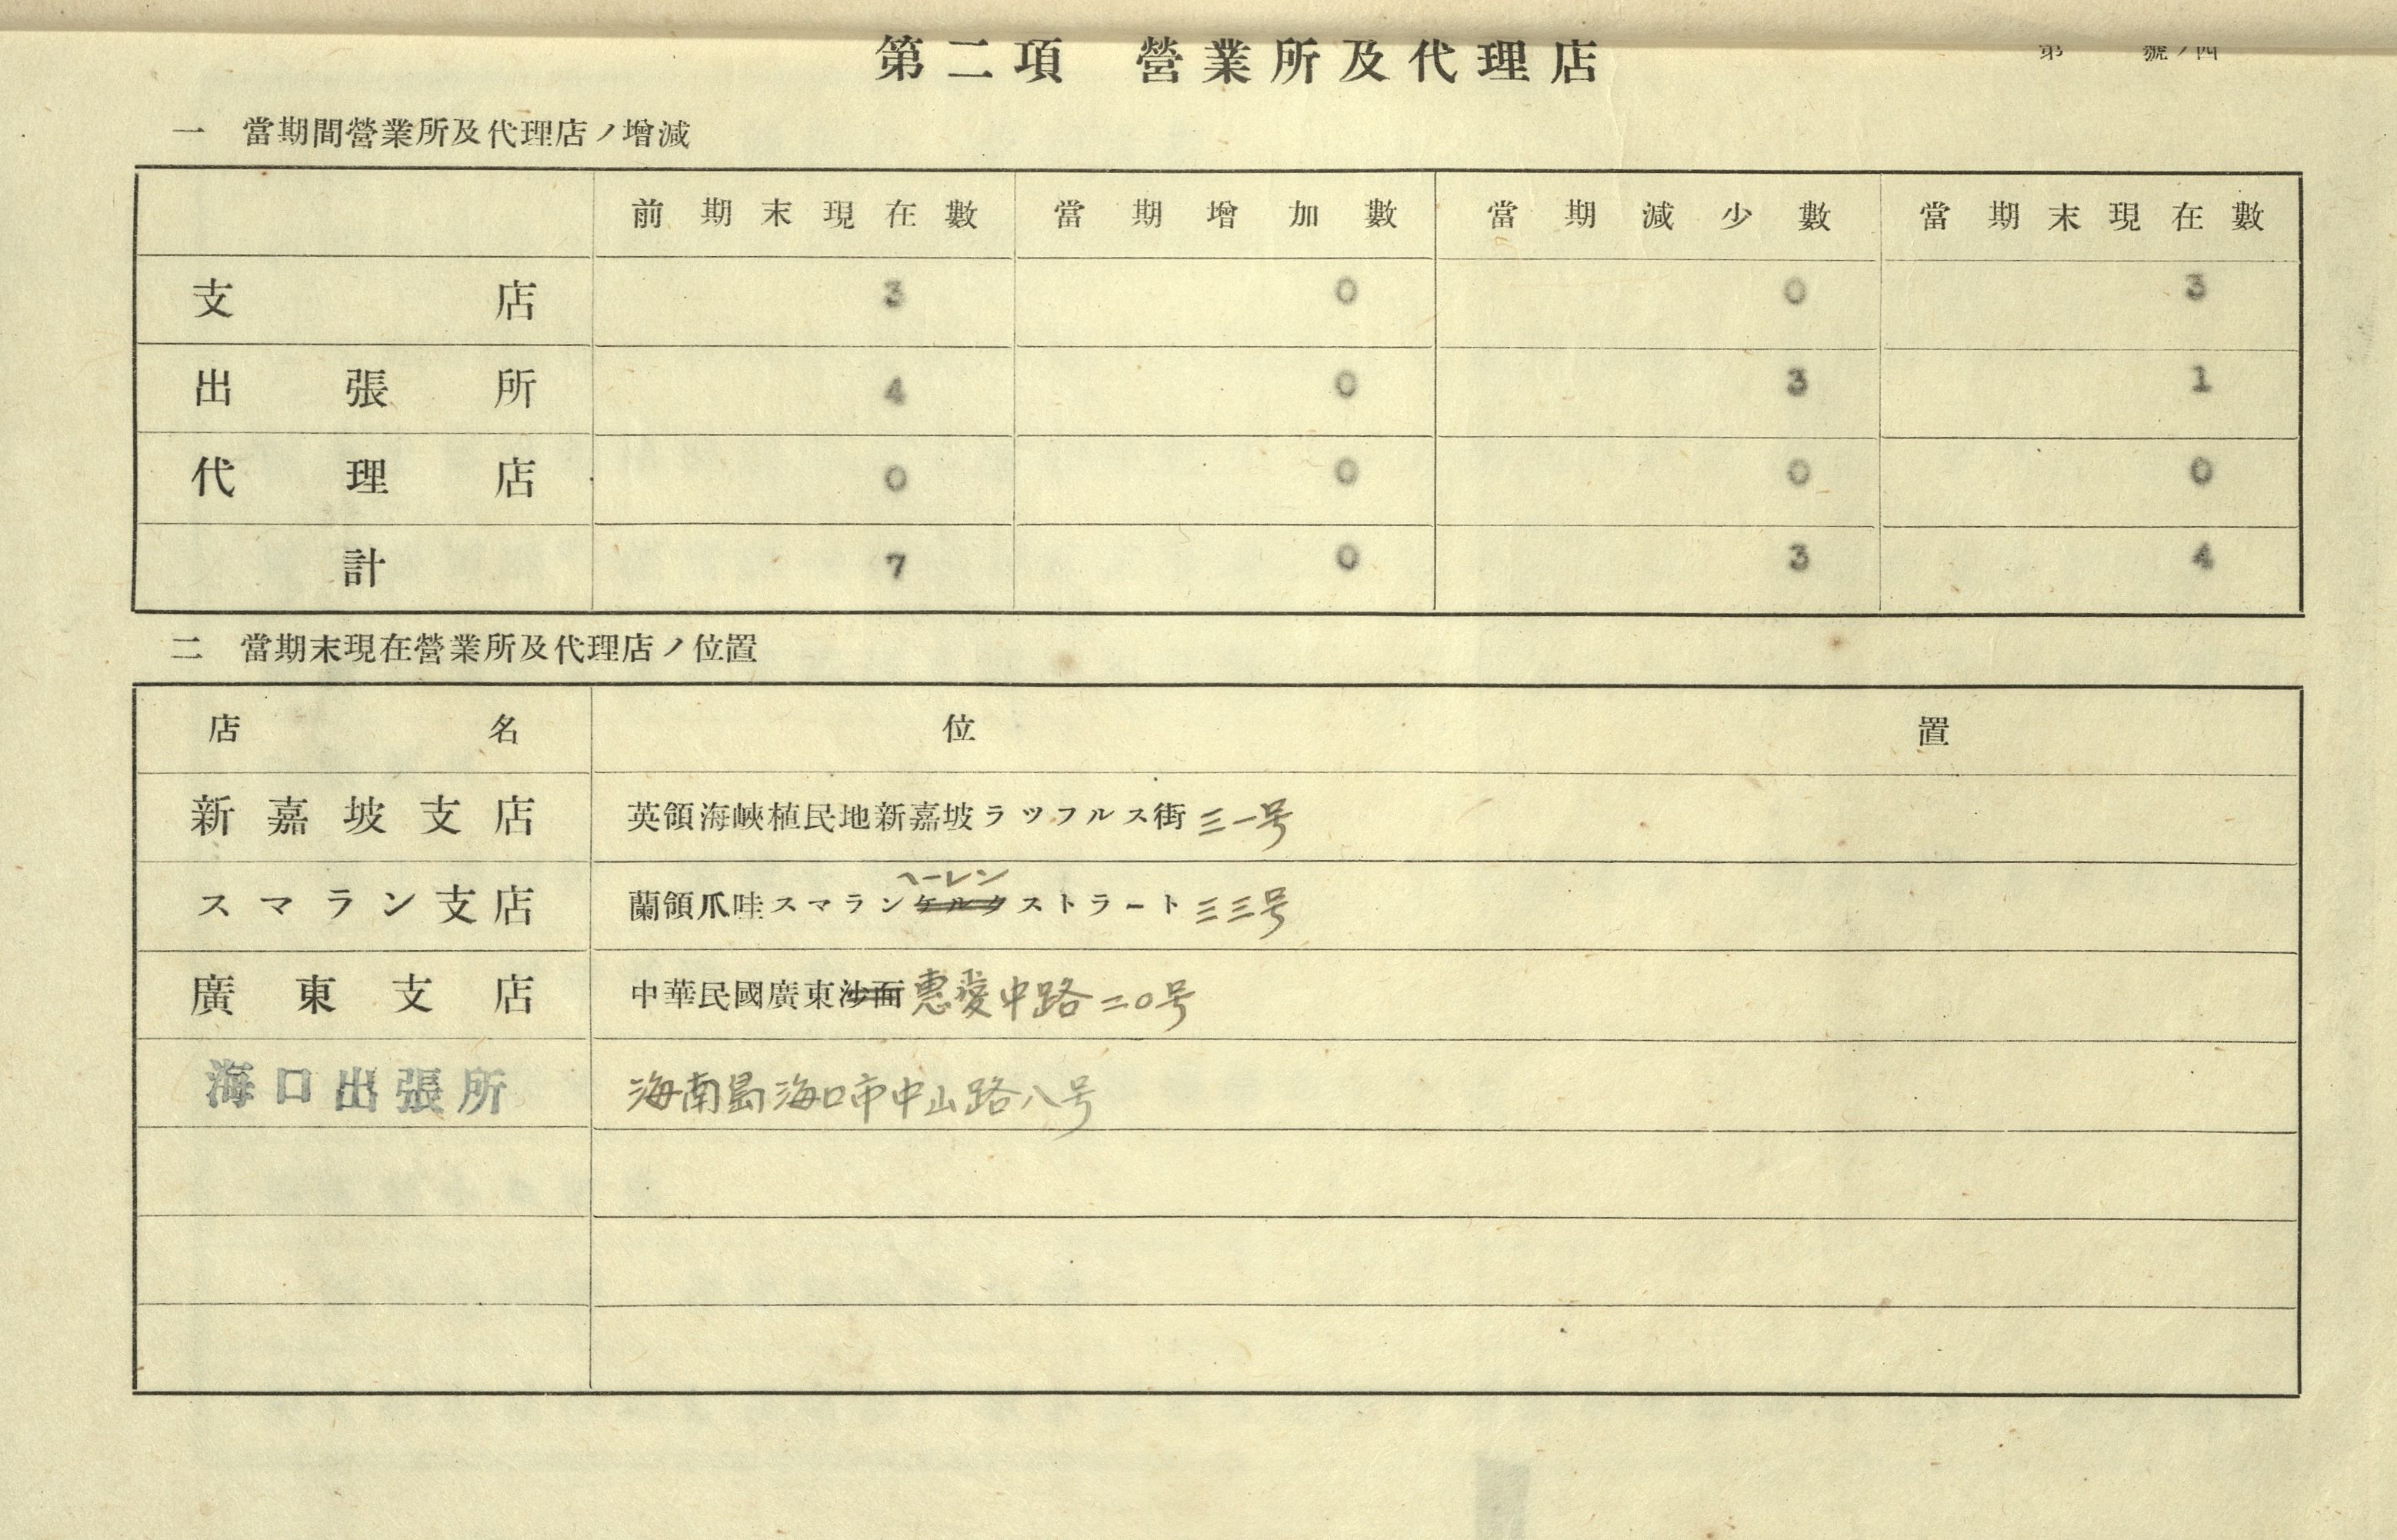 第二項 營業所及代理店
第 號ノ四
一 當期間營業所及代理店ノ增減
前期末現在數 當期增加數 當期減少數 當期末現在數
支店 3 0 0 3
出張所 4 0 3 1
代理店 0 0 0 0
計 7 0 3 4
二 當期末現在營業所及代理店ノ位置
店名 位置
新嘉坡支店 英領海峽植民地新嘉坡ラツフルス街三一号
ヘーレン
スマラン支店 蘭領爪哇スマランケルクストラート三三号
廣東支店 中華民國廣東沙面惠愛中路二〇号
海口出張所 海南島海口市中山路八号